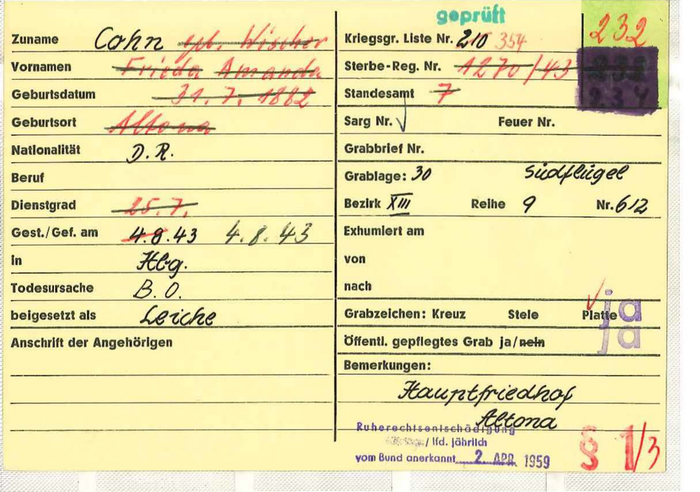 geprüft
Zuname Cohn geb. Wischer
Vornamen Frieda Amanda
Geburtsdatum 31.7.1882
Geburtsort Altona
Nationalität D.R.
Beruf
Dienstgrad 25.7.
Gest./Gef. am 4.8.43 4.8.43
in Hbg.
Todesursache B.O.
beigesetzt als Leiche
Anschrift der Angehörigen
Kriegsgr. Liste Nr. 210 354
232
Sterbe-Reg. Nr. 1270/43
Standesamt 7
234
Sarg Nr. Feuer Nr.
Grabbrief Nr.
Grablage: 30 Südflügel
Bezirk XIII Reihe 9 Nr. 612
Exhumiert am
von
nach
Grabzeichen: Kreuz Stele Platte ja
Öffentl. gepflegtes Grab ja/nein ja
Bemerkungen:
Hauptfriedhof
Altona
Ruherechtsentschädigung
/ lfd. jährlich
vom Bund anerkannt 2. APR. 1959
§ 1/3